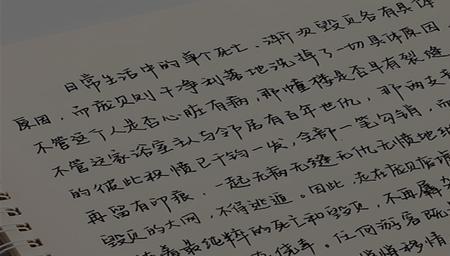 日常生活中的单个死亡、渐次毁灭各有具体
原因，而庞贝则干净利落地洗掉了一切具体原因，
不管这个人是否心脏有病，那幢楼是否早有裂缝
不管这家浴室主人与邻居有百年世仇，那两支
的彼此积愤已千钧一发，全部一笔勾销，而
再留有印痕，一起无病无缝无仇无愤地
毁灭的大网，不得逃遁。因此，走在庞贝
着最纯粹的死亡和毁灭，不再
侥幸。任何游客
悄悄移情